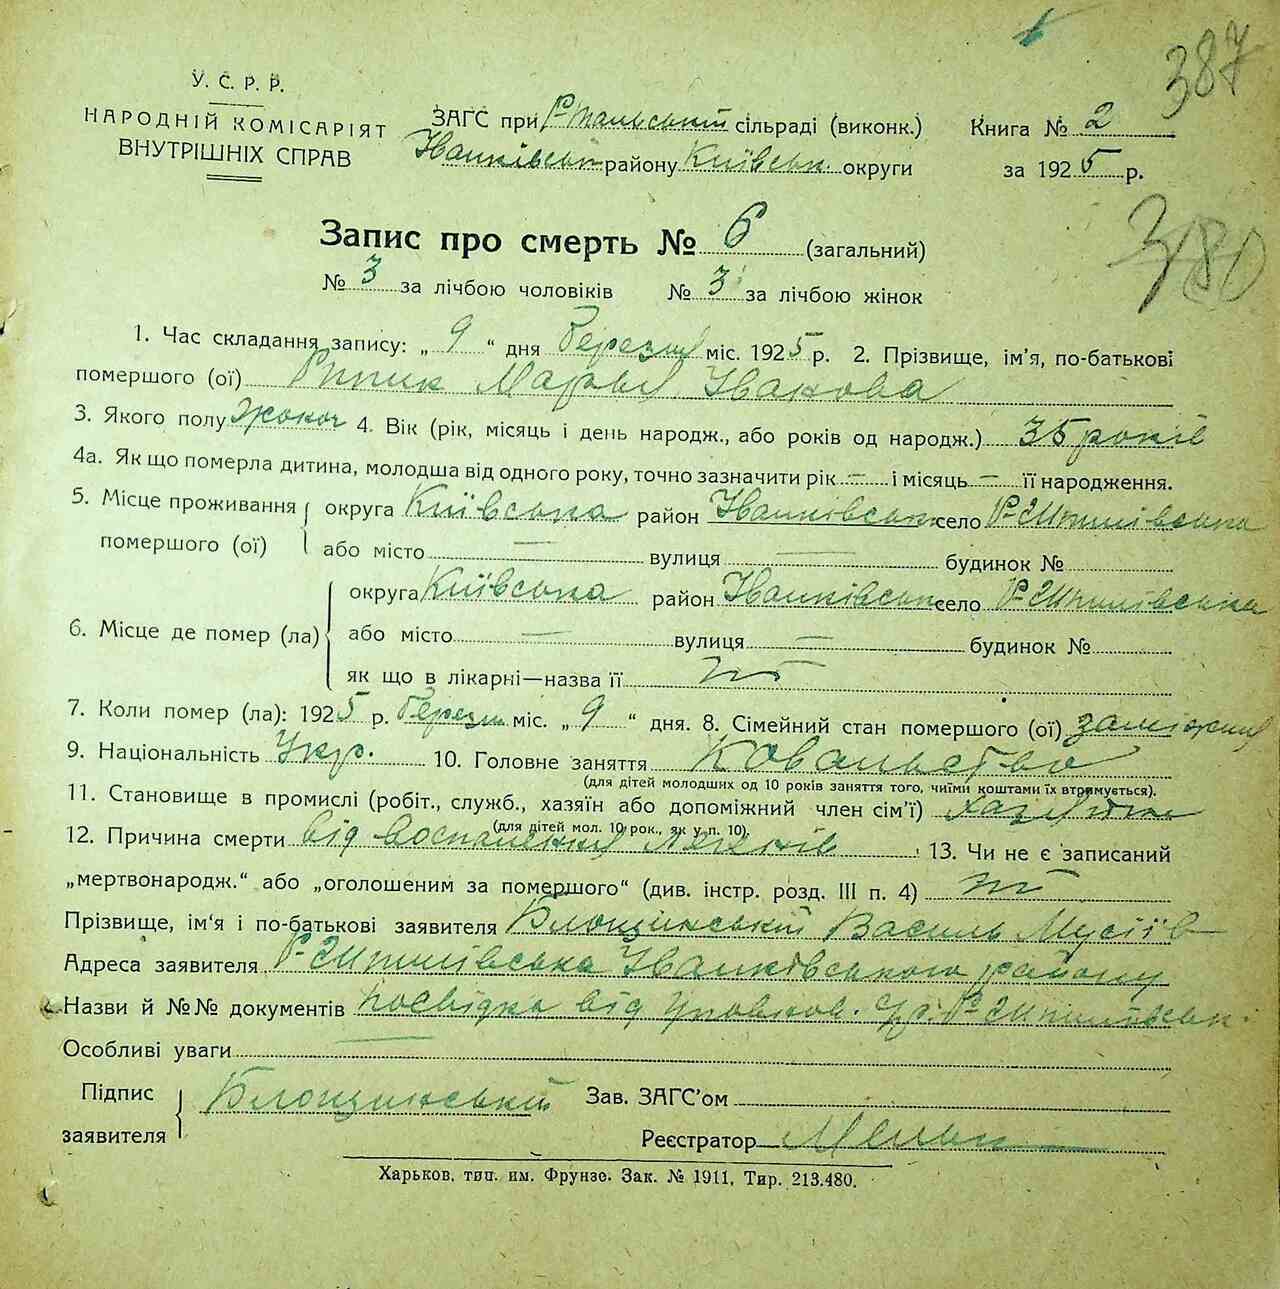 387
У. С. Р. Р.
НАРОДНІЙ КОМІСАРІЯТ
ВНУТРІШНІХ СПРАВ
ЗАГС при Р-Тальський сільраді (виконк.)
Іванківськ району Київськ. округи
Книга № 2
за 1925 р.
380
Запис про смерть № 6 (загальний)
№ 3 за лічбою чоловіків № 3 за лічбою жінок
1. Час складання запису: „ 9 “ дня Березня міс. 1925 р. 2. Прізвище, ім’я, по-батькові
помершого (ої) Марья Івакова
3. Якого полу Жіноч 4. Вік (рік, місяць і день народж., або років од народж.) 35 років
4а. Як що померла дитина, молодша від одного року, точно зазначити рік — і місяць — її народження.
5. Місце проживання помершого (ої) округа Київська район Іванківськ село
або місто — вулиця — будинок №
6. Місце де помер (ла) округа Київська район Іванківськ село
або місто — вулиця — будинок №
як що в лікарні—назва її ні
7. Коли помер (ла): 1925 р. Березн міс. „ 9 “ дня. 8. Сімейний стан помершого (ої) заміжния
9. Національність Укр. 10. Головне заняття Ковальство
(для дітей молодших од 10 років заняття того, чиїми коштами їх втримується).
11. Становище в промислі (робіт., служб., хазяїн або допоміжний член сім’ї) хазяїн
(для дітей мол. 10 рок., як у п. 10).
12. Причина смерти від воспаления легенів 13. Чи не є записаний
„мертвонародж.“ або „оголошеним за помершого“ (див. інстр. розд. III п. 4) ні
Прізвище, ім‘я і по-батькові заявителя Блощинський Василь Мусіїв
Адреса заявителя Іванківського району
Назви й №№ документів посвідка від
Особливі уваги
Підпис заявителя Блощинський Зав. ЗАГС’ом
Реєстратор
Харьков, тип. им. Фрунзе. Зак. № 1911, Тир. 213.480.